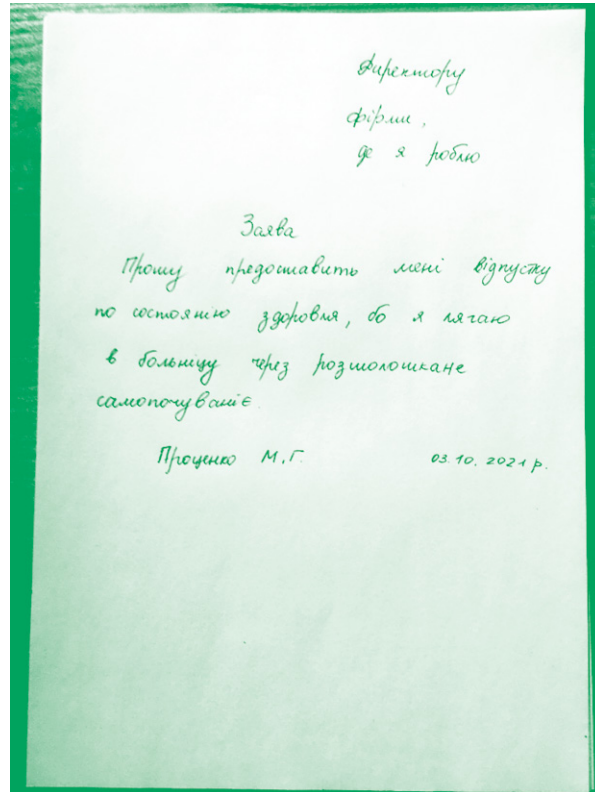 Директору
фірми,
де я роблю
Заява
Прошу предоставить мені відпустку
по состоянію здоровля, бо я лягаю
в больніцу через розшолошкане
самопочуваніє.
Проценко М.Г. 03.10.2021 р.